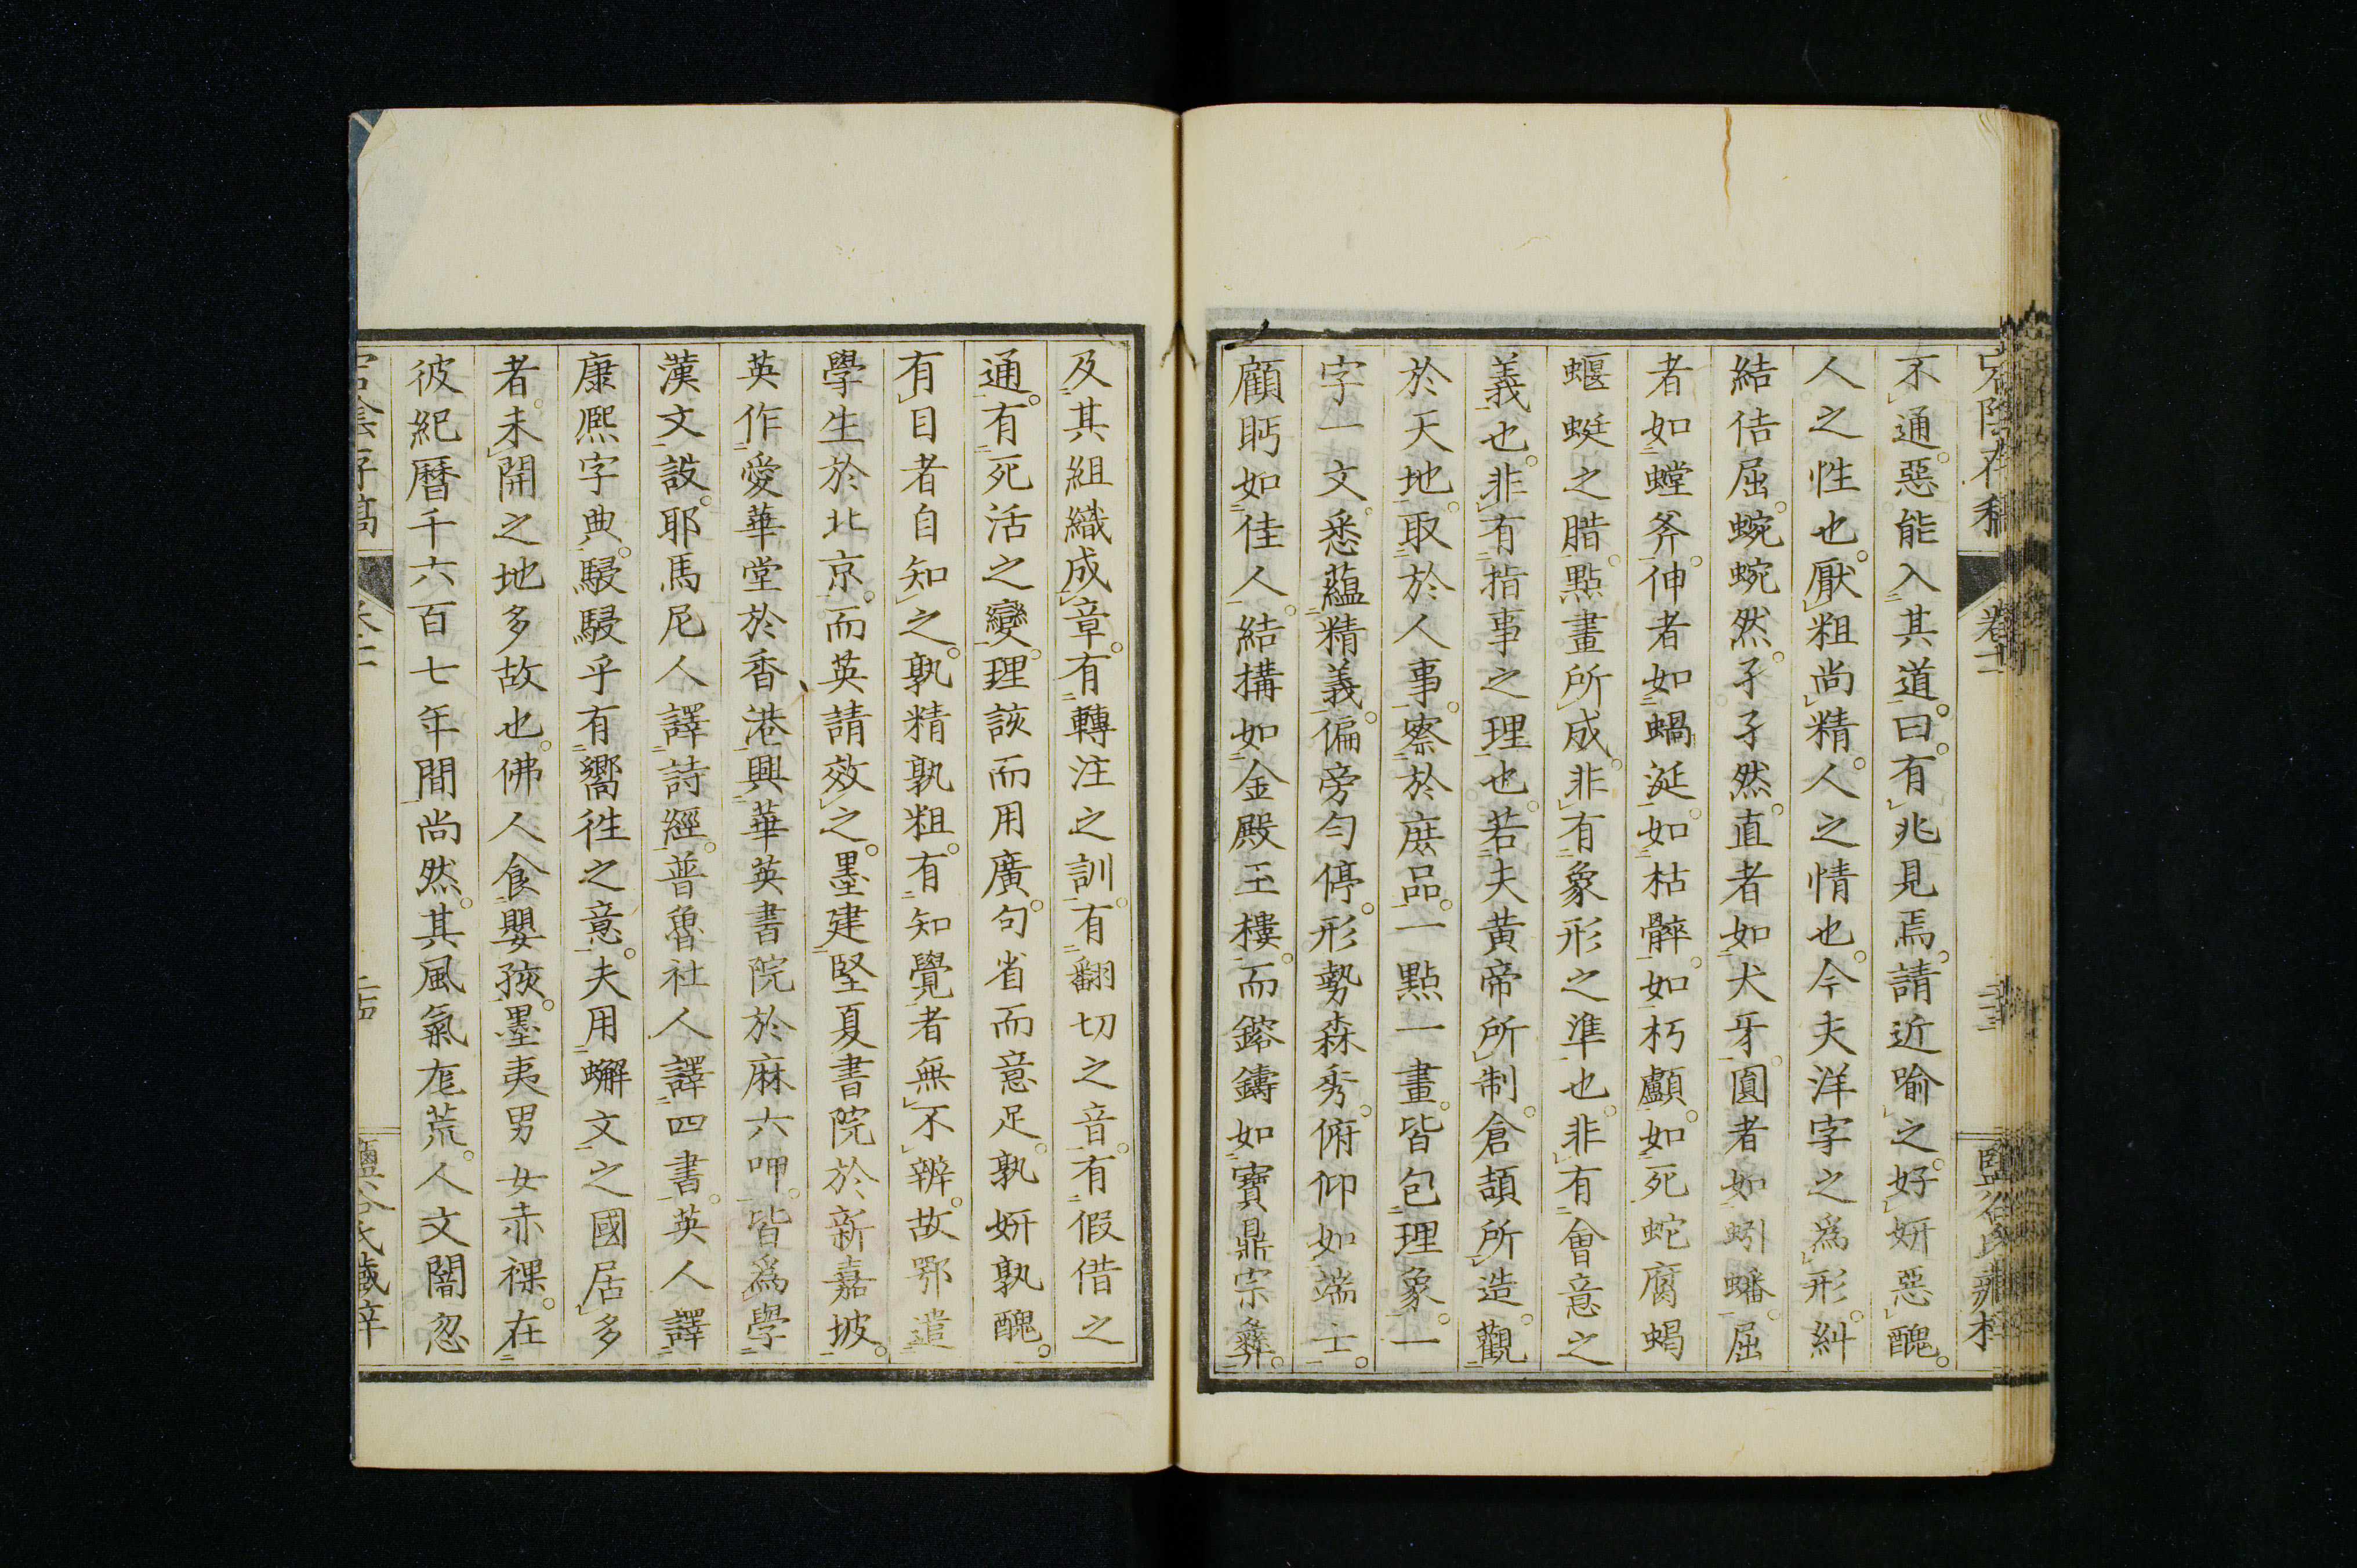 宕陰存稿 卷十一 十三 鹽谷氏藏梓
不通。惡能入其道。曰。有兆見焉。請近喻之。好妍惡醜。
人之性也。厭粗尚精。人之情也。今夫洋字之爲形。糾
結佶屈。蜿蜿然。孑孑然。直者如犬牙。圓者如蚓蟠。屈
者如螳斧。伸者如蝸涎。如枯髀。如朽顱。如死蛇腐蝎
蝘蜓之腊。點畫所成。非有象形之準也。非有會意之
義也。非有指事之理也。若夫黄帝所制。倉頡所造。觀
於天地。取於人事。察於庶品。一點一畫。皆包理象。一
字一文。悉蘊精義。偏旁勻停。形勢森秀。俯仰如端士。
顧眄如佳人。結構如金殿玉樓。而鎔鑄如寶鼎宗彝。
及其組織成章。有轉注之訓。有翻切之音。有假借之
通。有死活之變。理該而用廣。句省而意足。孰妍孰醜。
有目者自知之。孰精孰粗。有知覺者無不辨。故鄂遣
學生於北京。而英請效之。墨建堅夏書院於新嘉坡。
英作愛華堂於香港。興華英書院於麻六呷。皆爲學
漢文設。耶馬尼人譯詩經。普魯社人譯四書。英人譯
康熙字典。駸駸乎有嚮徃之意。夫用蠏文之國。居多
者。未開之地多故也。佛人食嬰孩。墨夷男女赤裸。在
彼紀曆千六百七年間尚然。其風氣尨荒。人文闇忽
宕陰存稿